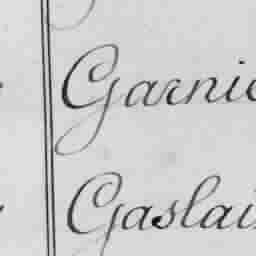 Garnie
Gaslai